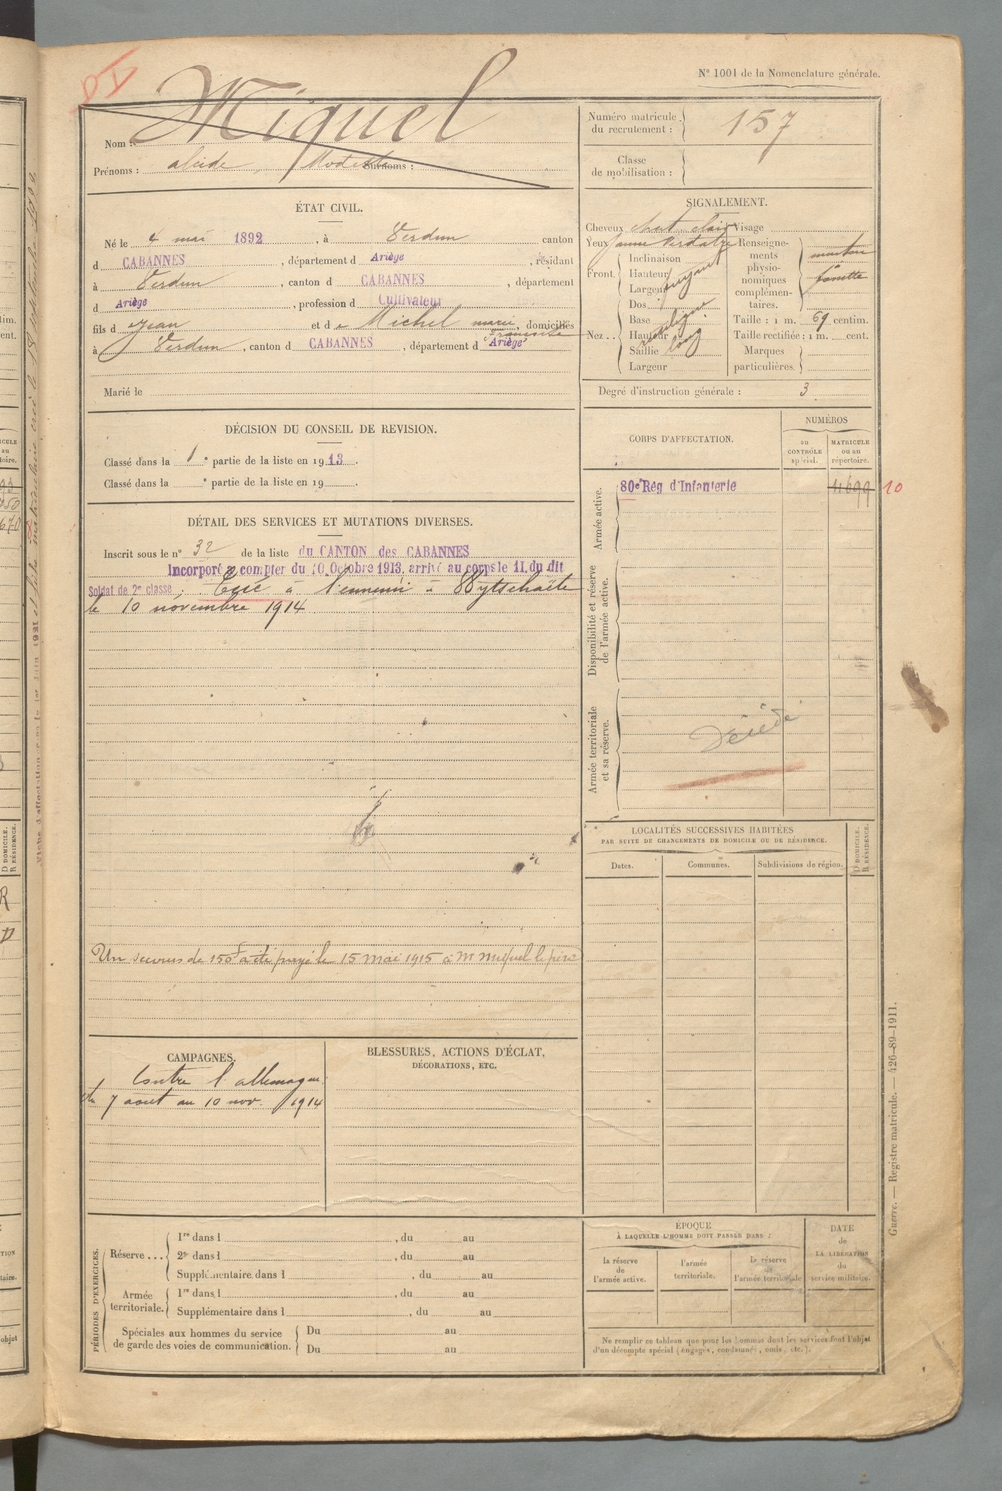 N° 1001 de la Nomenclature générale.
Nom : Miquel
Prénoms : Modeste Surnoms :
Numéro matricule du recrutement : 157
Classe de mobilisation :
ÉTAT CIVIL.
Né le 4 mai 1892, à Verdun canton
d CABANNES, département d Ariège, résidant
à Verdun, canton d CABANNES, département
d Ariège, profession d Cultivateur
fils d Jean et de Michel marie françoise, domiciliés
à Verdun, canton d CABANNES, département d Ariège
Marié le
SIGNALEMENT.
Cheveux chat clair Visage
Yeux jaune verdatre
Renseignements physionomiques complémentaires.
Front. Inclinaison
Hauteur
Largeur
fuyant
Nez.. Dos
Base
Hauteur
Saillie long
Largeur
Taille : 1 m. 69 centim.
Taille rectifiée : 1 m. cent.
Marques particulières.
Degré d'instruction générale : 3
DÉCISION DU CONSEIL DE REVISION.
Classé dans la 1e partie de la liste en 1913.
Classé dans la e partie de la liste en 19 .
DÉTAIL DES SERVICES ET MUTATIONS DIVERSES.
Inscrit sous le n° 32 de la liste du CANTON des CABANNES
Incorporé à compter du 10 Octobre 1913, arrivé au corps le 11 du dit
Soldat de 2e classe ; Tué à l'ennemi à Wytschaëte
le 10 novembre 1914
Un secours de 150f a été payé le 15 mai 1915 à M Miquel le père
CORPS D'AFFECTATION.
NUMÉROS
AU CONTRÔLE spécial.
MATRICULE OU AU répertoire.
Armée active.
80e Reg d'Infanterie
10
Disponibilité et réserve de l'armée active.
Armée territoriale et sa réserve.
Décédé
LOCALITÉS SUCCESSIVES HABITÉES
PAR SUITE DE CHANGEMENTS DE DOMICILE OU DE RÉSIDENCE.
Dates. Communes. Subdivisions de région.
D DOMICILE.
R RÉSIDENCE.
CAMPAGNES.
Contre l'allemagne
du 7 aout au 10 nov. 1914
BLESSURES, ACTIONS D'ÉCLAT,
DÉCORATIONS, ETC.
PÉRIODES D'EXERCICES.
Réserve ... 1re dans l , du au
2e dans l , du au
Supplémentaire dans l , du au
Armée territoriale. 1re dans l , du au
Supplémentaire dans l , du au
Spéciales aux hommes du service de garde des voies de communication. Du au
Du au
ÉPOQUE
À LAQUELLE L'HOMME DOIT PASSER DANS :
la réserve de l'armée active.
l'armée territoriale.
la réserve de l'armée territoriale
DATE de LA LIBÉRATION du service militaire.
Ne remplir ce tableau que pour les hommes dont les services font l'objet
d'un décompte spécial (engagés, condamnés, omis, etc.).
Guerre. — Registre matricule. — 426-89-1911.